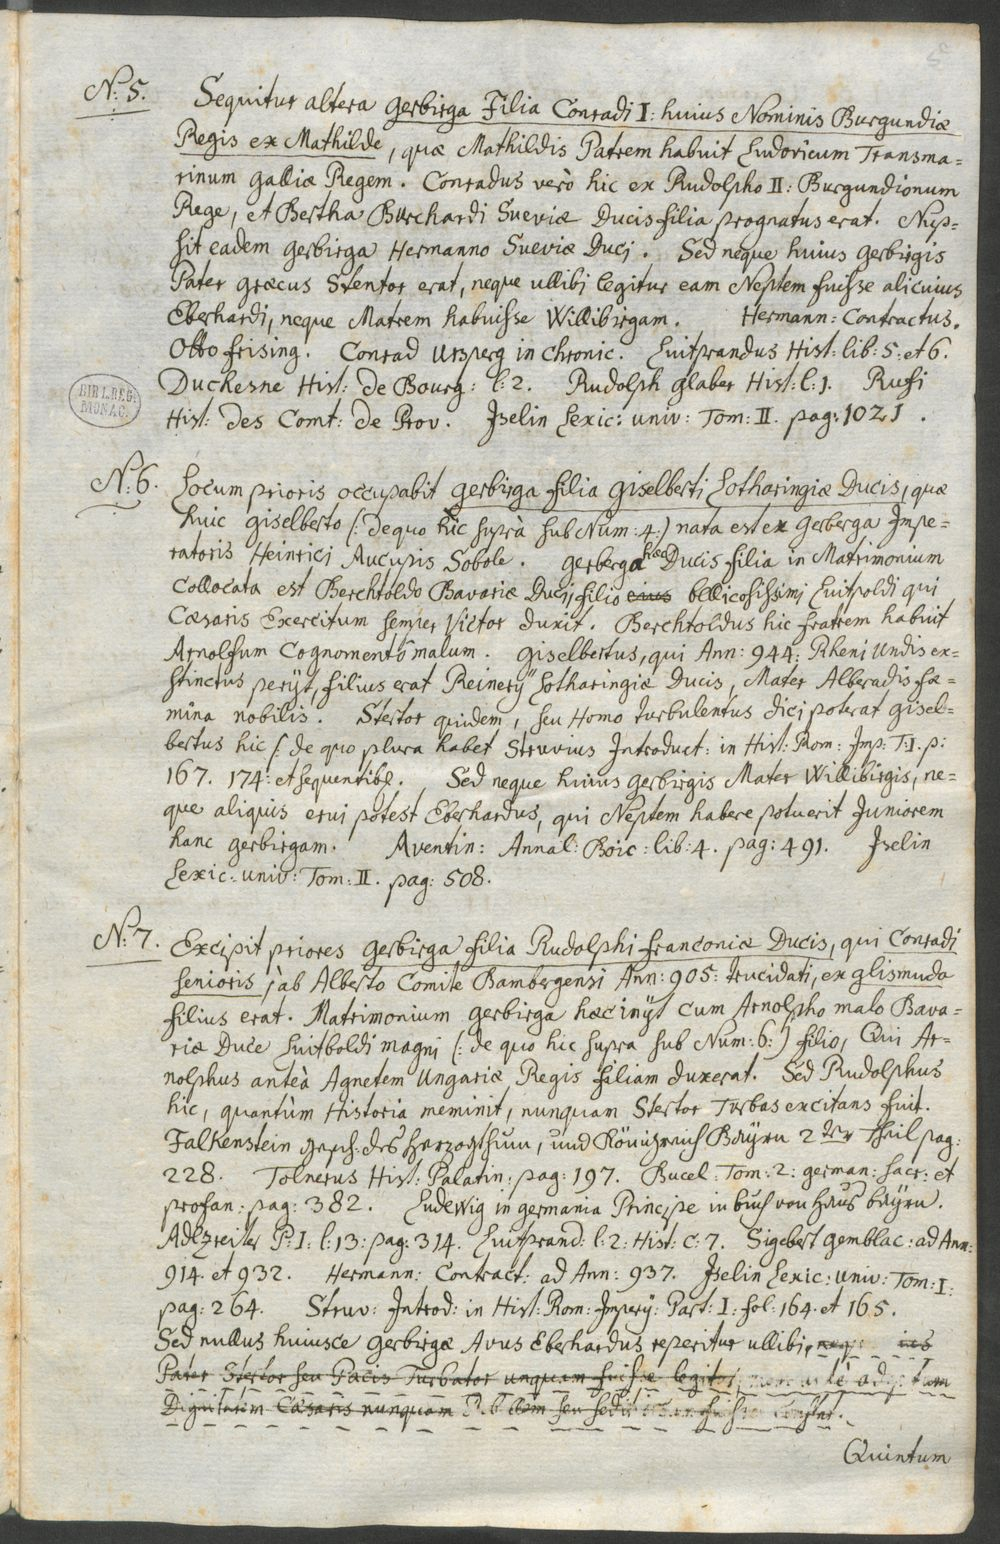 N: 5. Sequitur altera Gerbirga Filia Conradi I: huius Nominis Burgundiæ
Regis ex Mathilde, quæ Mathildis Patrem habuit Ludovicum Transma=
rinum Galliæ Regem. Conradus verò hic ex Rudolpho II: Burgundionum
Rege, et Bertha Burchardi Sueviæ Ducis filia prognatus erat. Nup=
sit eadem Gerbirga Hermanno Sueviæ Duci. Sed neque huius Gerbirgis
Pater Græcus Stentor erat, neque ullibi legitur eam Neptem fuisse alicuius
Eberhardi, neque Matrem habuisse Willibirgam. Hermann: Contractus.
Otto Frising. Conrad Ursperg in Chronic. Luitprandus Hist: lib: 5. et 6.
Duchesne Hist: de Bourg: l: 2. Rudolph Glaber Hist: l: 1. Rufi
BIBL.REG.
MONAC.
Hist: des Comt: de Prov. Iselin Lexic: univ: Tom: II. pag: 1021.
N: 6. Locum prioris occupabit Gerbirga filia Giselberti Lotharingiæ Ducis, quæ
huic Giselberto (: de quo hic suprà sub Num: 4:) nata est ex Gerberga Impe=
ratoris Heinrici Aucupis Sobole. Gerberga hæc Ducis filia in Matrimonium
Collocata est Berchtoldo Bavariæ Duci, filio eius bellicosissimi Luitpoldi qui
Cæsaris Exercitum semper Victor duxit. Berchtoldus hic fratrem habuit
Arnolfum Cognomento malum. Giselbertus, qui Ann: 944: Rheni Undis ex=
stinctus perÿt, filius erat Reinerÿ Lotharingiæ Ducis, Mater Alberadis fæ=
mina nobilis. Stertor quidem, seu Homo turbulentus dici poterat Gisel=
bertus hic (: de quo plura habet Struvius Introduct: in Hist: Rom: Imp: T: I. p:
167. 174: et sequentibq. Sed neque huius Gerbirgis Mater Willibirgis, ne=
que aliquis erui potest Eberhardus, qui Neptem habere potuerit Juniorem
hanc Gerbirgam. Aventin: Annal: Boic: lib: 4. pag: 491. Iselin
Lexic: univ: Tom: II. pag: 508.
N: 7. Excipit priores Gerbirga filia Rudolphi Franconiæ Ducis, qui Conradi
senioris, ab Alberto Comite Bambergensi Ann: 905: trucidati, ex Glismuda
filius erat. Matrimonium Gerbirga hæc inÿt cum Arnolpho malo Bava=
riæ Duce Luitboldi magni (: de quo hic supra sub Num: 6:) filio, Qui Ar=
nolphus anteà Agnetem Ungariæ Regis filiam duxerat. Sed Rudolphus
hic, quantùm Historia meminit, nunquam Stertor Turbas excitans fuit.
Falkenstein Gesch: des Herzogthum, und Königreich Bäyrn 2ter Theil pag:
228. Tolnerus Hist: Palatin: pag: 197. Bucel: Tom: 2: German: Sacr: et
profan: pag: 382. Ludewig in Germania Principe in buch von Haus bäyrn.
Adlzreiter P: I: l: 13: pag: 314. Luitprand: l: 2: Hist: C: 7. Sigebert Gemblac: ad Ann:
914. et 932. Hermann: Contract: ad Ann: 937. Iselin Lexic: univ: Tom: I:
pag: 264. Struv: Introd: in Hist: Rom: Imperÿ: Part: I: fol: 164. et 165.
Sed nullus huiusce Gerbirgæ Avus Eberhardus reperitur ullibi, neque
Pater Stertor seu Pacis Turbator unquam fuisse legitur,
Dignitatem Cæsaris nunquam
Quintum